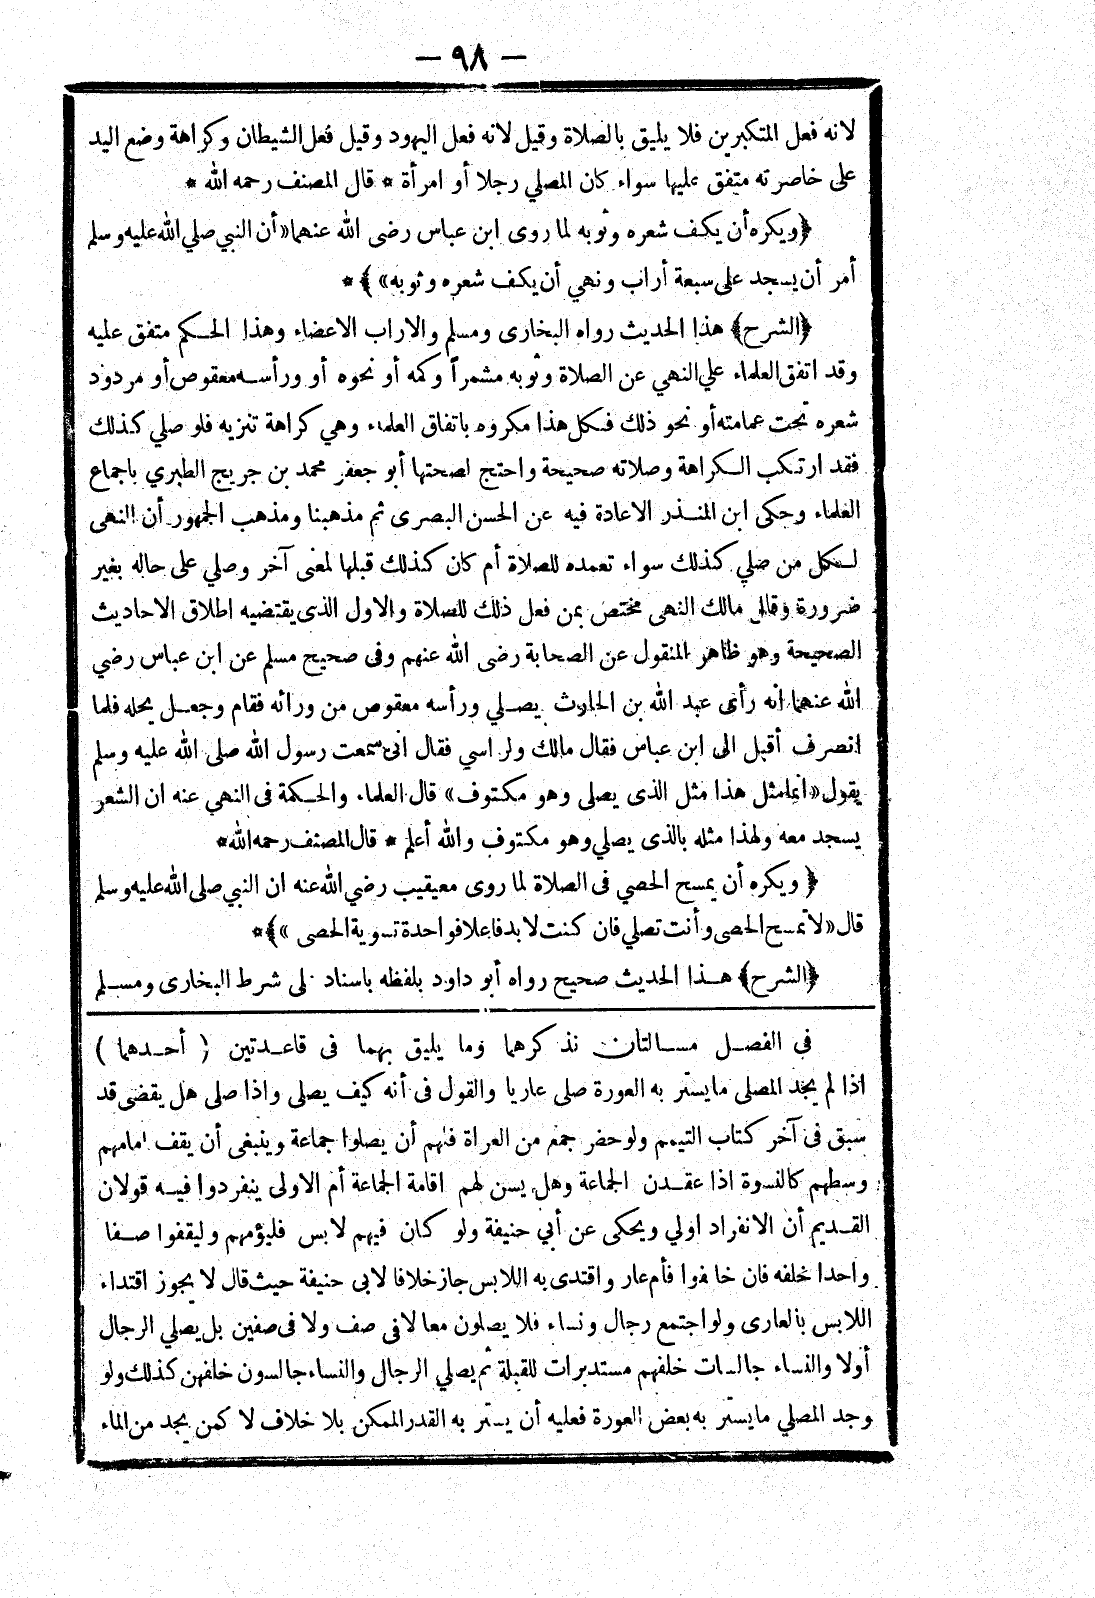 — ٩٨ —
لانه فعل المتكبرين فلا يليق بالصلاة وقيل لانه فعل اليهود وقيل فعل الشيطان وكراهة وضع اليد
على خاصرته متفق عليها سواء كان المصلي رجلا أو امرأة * قال المصنف رحمه الله *
﴿ويكره أن يكف شعره وثوبه لما روى ابن عباس رضى الله عنهما «أن النبي صلي الله عليه وسلم
أمر أن يسجد على سبعة أراب ونهي أن يكف شعره وثوبه» ﴾ *
﴿الشرح﴾ هذا الحديث رواه البخارى ومسلم والاراب الاعضاء وهذا الحكم متفق عليه
وقد اتفق العلماء علي النهي عن الصلاة وثوبه مشمراً وكمه أو نحوه أو ورأسه معقوص أو مردود
شعره تحت عمامته أو نحو ذلك فكل هذا مكروه باتفاق العلماء وهي كراهة تنزيه فلو صلي كذلك
فقد ارتكب الكراهة وصلاته صحيحة واحتج لصحتها أبو جعفر محمد بن جريج الطبري باجماع
العلماء وحكى ابن المنذر الاعادة فيه عن الحسن البصرى ثم مذهبنا ومذهب الجمهور أن النهى
لكل من صلي كذلك سواء تعمده للصلاة أم كان كذلك قبلها لمعنى آخر وصلي على حاله بغير
ضرورة وقال مالك النهى مختص بمن فعل ذلك للصلاة والاول الذى يقتضيه اطلاق الاحاديث
الصحيحة وهو ظاهر المنقول عن الصحابة رضى الله عنهم وفى صحيح مسلم عن ابن عباس رضي
الله عنهما انه رأى عبد الله بن الحارث يصلي ورأسه معقوص من ورائه فقام وجعل يحله فلما
انصرف أقبل الى ابن عباس فقال مالك ولراسي فقال انى سمعت رسول الله صلى الله عليه وسلم
يقول «انما مثل هذا مثل الذى يصلى وهو مكتوف» قال العلماء والحكمة فى النهي عنه ان الشعر
يسجد معه ولهذا مثله بالذى يصلي وهو مكتوف والله أعلم * قال المصنف رحمه الله *
﴿ ويكره أن يمسح الحصي فى الصلاة لما روى معيقيب رضي الله عنه ان النبي صلى الله عليه وسلم
قال «لا تمسح الحصى وأنت تصلي فان كنت لا بد فاعلا فواحدة تسوية الحصى »﴾ *
﴿الشرح﴾ هذا الحديث صحيح رواه أبو داود بلفظه باسناد على شرط البخارى ومسلم
في الفصل مسالتان نذكرهما وما يليق بهما فى قاعدتين ( أحدهما )
اذا لم يجد المصلى ما يستر به العورة صلى عاريا والقول فى أنه كيف يصلى واذا صلى هل يقضى قد
سبق فى آخر كتاب التيمم ولو حضر جمع من العراة فلهم أن يصلوا جماعة وينبغى أن يقف امامهم
وسطهم كالنسوة اذا عقدن الجماعة وهل يسن لهم اقامة الجماعة أم الاولى ينفردوا فيه قولان
القديم أن الانفراد اولي ويحكى عن أبي حنيفة ولو كان فيهم لابس فليؤمهم وليقفوا صفا
واحدا خلفه فان خالفوا فأم عار واقتدى به اللابس جاز خلافا لابى حنيفة حيث قال لا يجوز اقتداء
اللابس بالعارى ولو اجتمع رجال ونساء فلا يصلون معا لا فى صف ولا فى صفين بل يصلي الرجال
أولا والنساء جالسات خلفهم مستدبرات للقبلة ثم يصلي الرجال والنساء جالسون خلفهن كذلك ولو
وجد المصلي ما يستر به بعض العورة فعليه أن يستر به القدر الممكن بلا خلاف لا كمن يجد من الماء